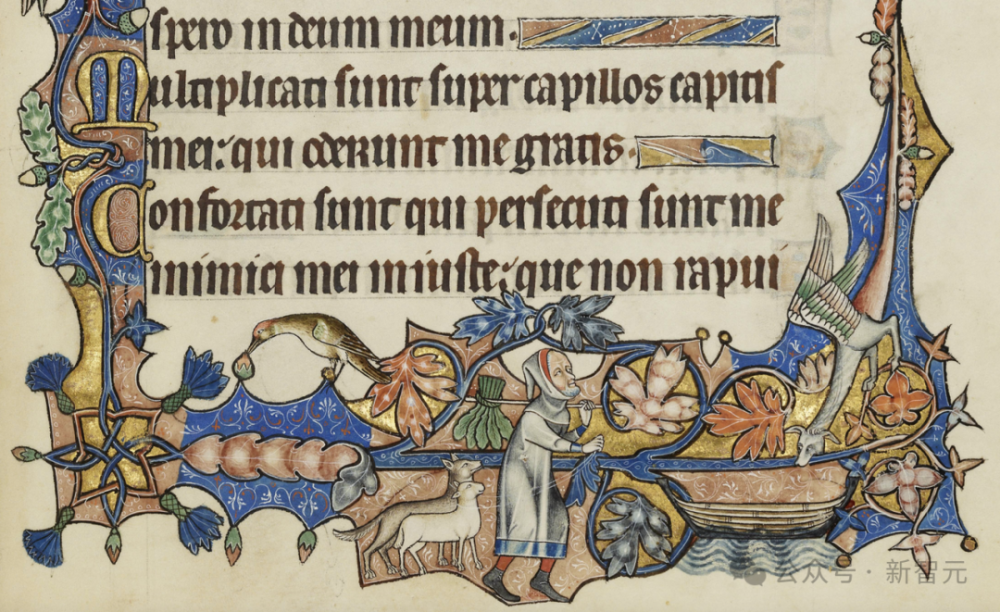 spero in deum meum.
Multiplicati sunt super capillos capitis
mei: qui oderunt me gratis.
Confortati sunt qui persecuti sunt me
inimici mei iniuste: que non rapui
公众号 · 新智元